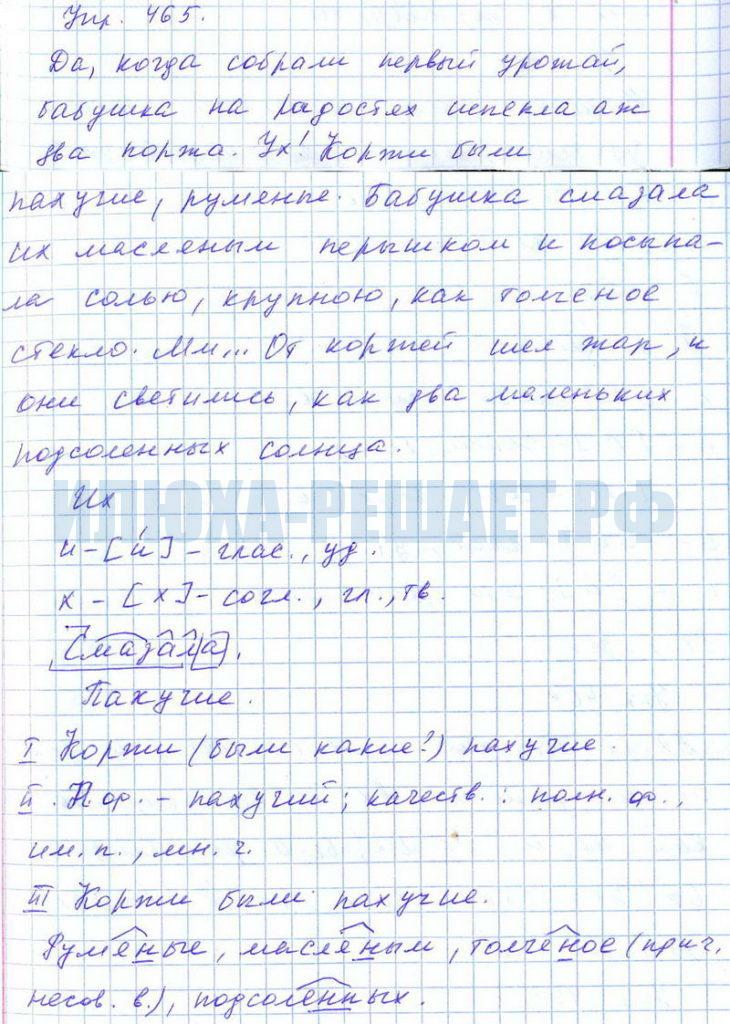 Упр. 465.
Да, когда собрали первый урожай,
бабушка на радостях испекла аж
два коржа. Ух! Коржи были
пахучие, руменые. Бабушка смазала
их масленым перышком и посыпа-
ла солью, крупною, как толченое
стекло. Мм... От коржей шел жар, и
они светились, как два маленьких
подсоленных солнца.
Их
ИЛЮХА-РЕШАЕТ.РФ
и - [и́] - глас., уд.
х - [х] - согл., гл., тв.
Смазала.
Пахучие.
I Коржи (были какие?) пахучие.
II. Н.ф. - пахучий; качеств.: полн. ф.,
им. п., мн. ч.
III Коржи были пахучие.
Руменые, масленым, толченое (прич.
несов. в.), подсоленных.